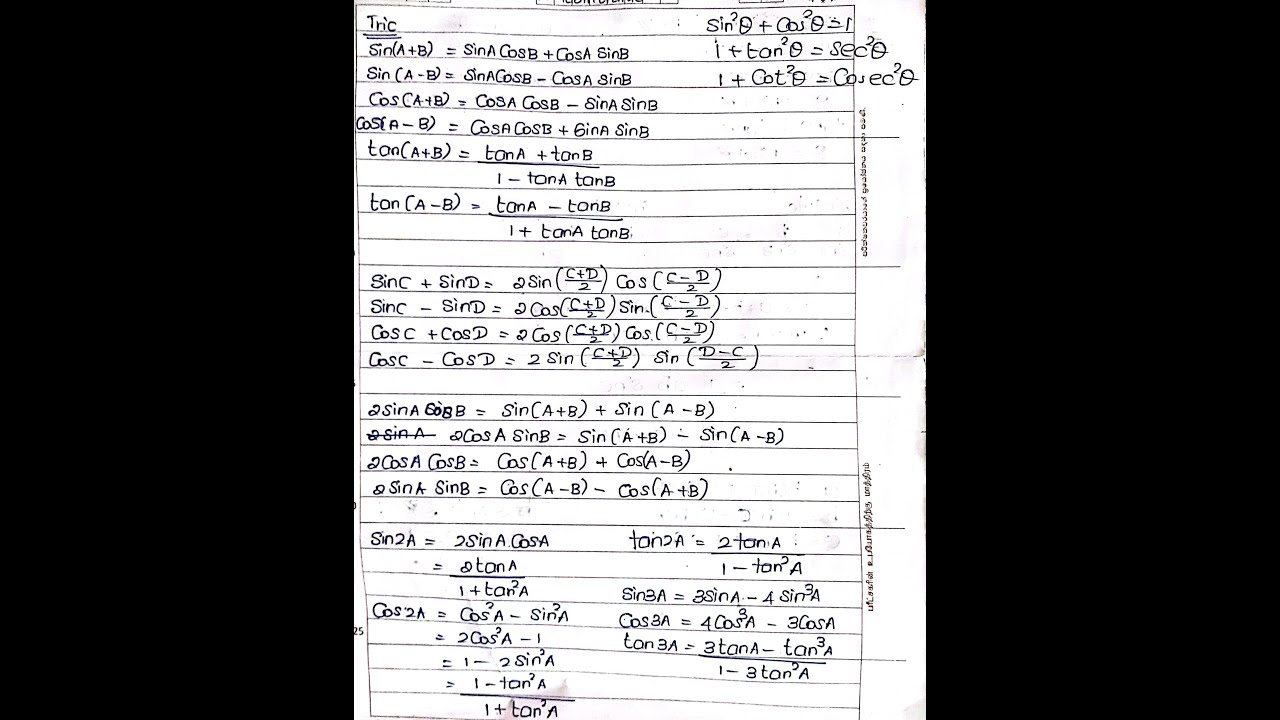 Tric
sin²θ + Cos²θ = 1
Sin(A+B) = SinA CosB + CosA SinB
1 + tan²θ = sec²θ
Sin (A-B) = SinACosB - CosA SinB
1 + Cot²θ = Cosec²θ
Cos(A+B) = CosA CosB - SinA SinB
Cos(A-B) = CosA CosB + SinA SinB
tan(A+B) = tanA + tanB
1 - tanA tanB
tan(A-B) = tanA - tanB
1 + tanA tanB
SinC + SinD = 2Sin(C+D/2) Cos(C-D/2)
SinC - SinD = 2Cos(C+D/2) Sin(C-D/2)
CosC + CosD = 2Cos(C+D/2) Cos(C-D/2)
CosC - CosD = 2 Sin(C+D/2) Sin(D-C/2)
2sinA CosB = Sin(A+B) + Sin(A-B)
2sinA 2CosA SinB = Sin(A+B) - Sin(A-B)
2CosA CosB = Cos(A+B) + Cos(A-B)
2SinA SinB = Cos(A-B) - Cos(A+B)
Sin2A = 2SinA CosA
tan2A = 2tanA
= 2tanA
1 - tan²A
1 + tan²A
Sin3A = 3SinA - 4Sin³A
Cos2A = Cos²A - Sin²A
Cos3A = 4Cos³A - 3CosA
= 2Cos²A - 1
tan3A = 3tanA - tan³A
25
= 1 - 2sin²A
1 - 3tan²A
= 1 - tan²A
1 + tan²A